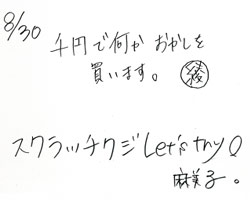 8/30
千円で何か おかしを
買います。 綾
スクラッチクジ Let's try!
麻美子。